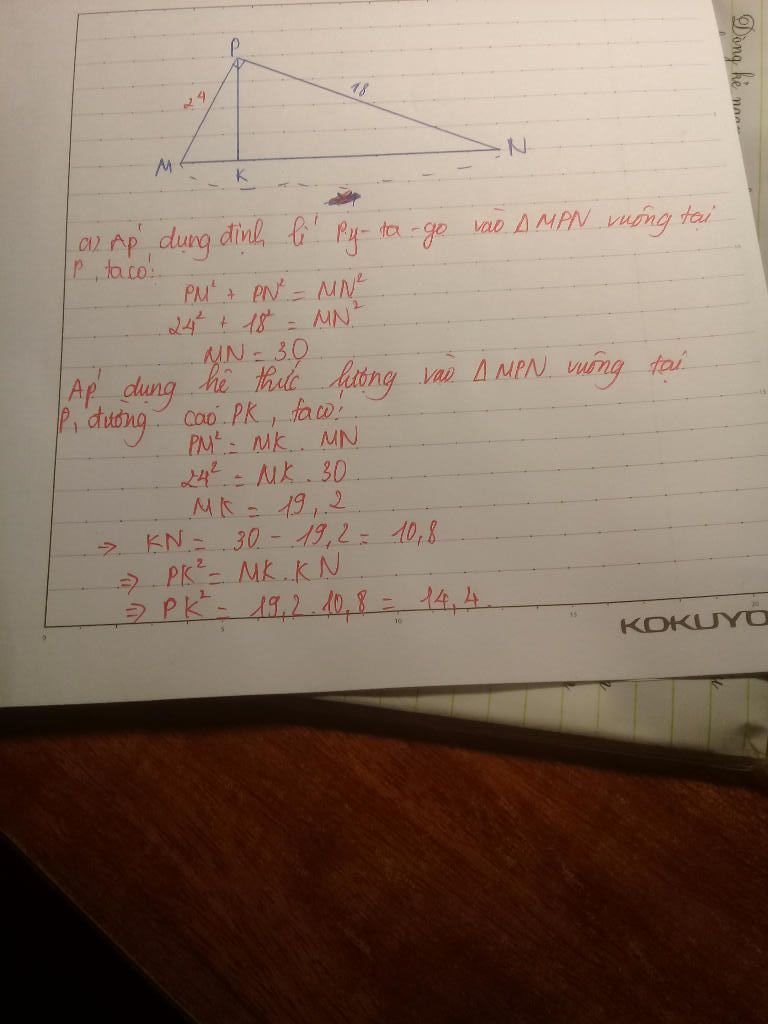 P
24
18
M
K
N
a) Áp dụng định lí Py-ta-go vào Δ MPN vuông tại
P, ta có:
PM² + PN² = MN²
24² + 18² = MN²
MN = 30
Áp dụng hệ thức lượng vào Δ MPN vuông tại
P, đường cao PK, ta có:
PM² = MK . MN
24² = MK . 30
MK = 19,2
→ KN = 30 - 19,2 = 10,8
⇒ PK² = MK . KN
⇒ PK² = 19,2 . 10,8 = 14,4.
0 5 10 15 20
KOKUYO
Dòng kẻ ngang